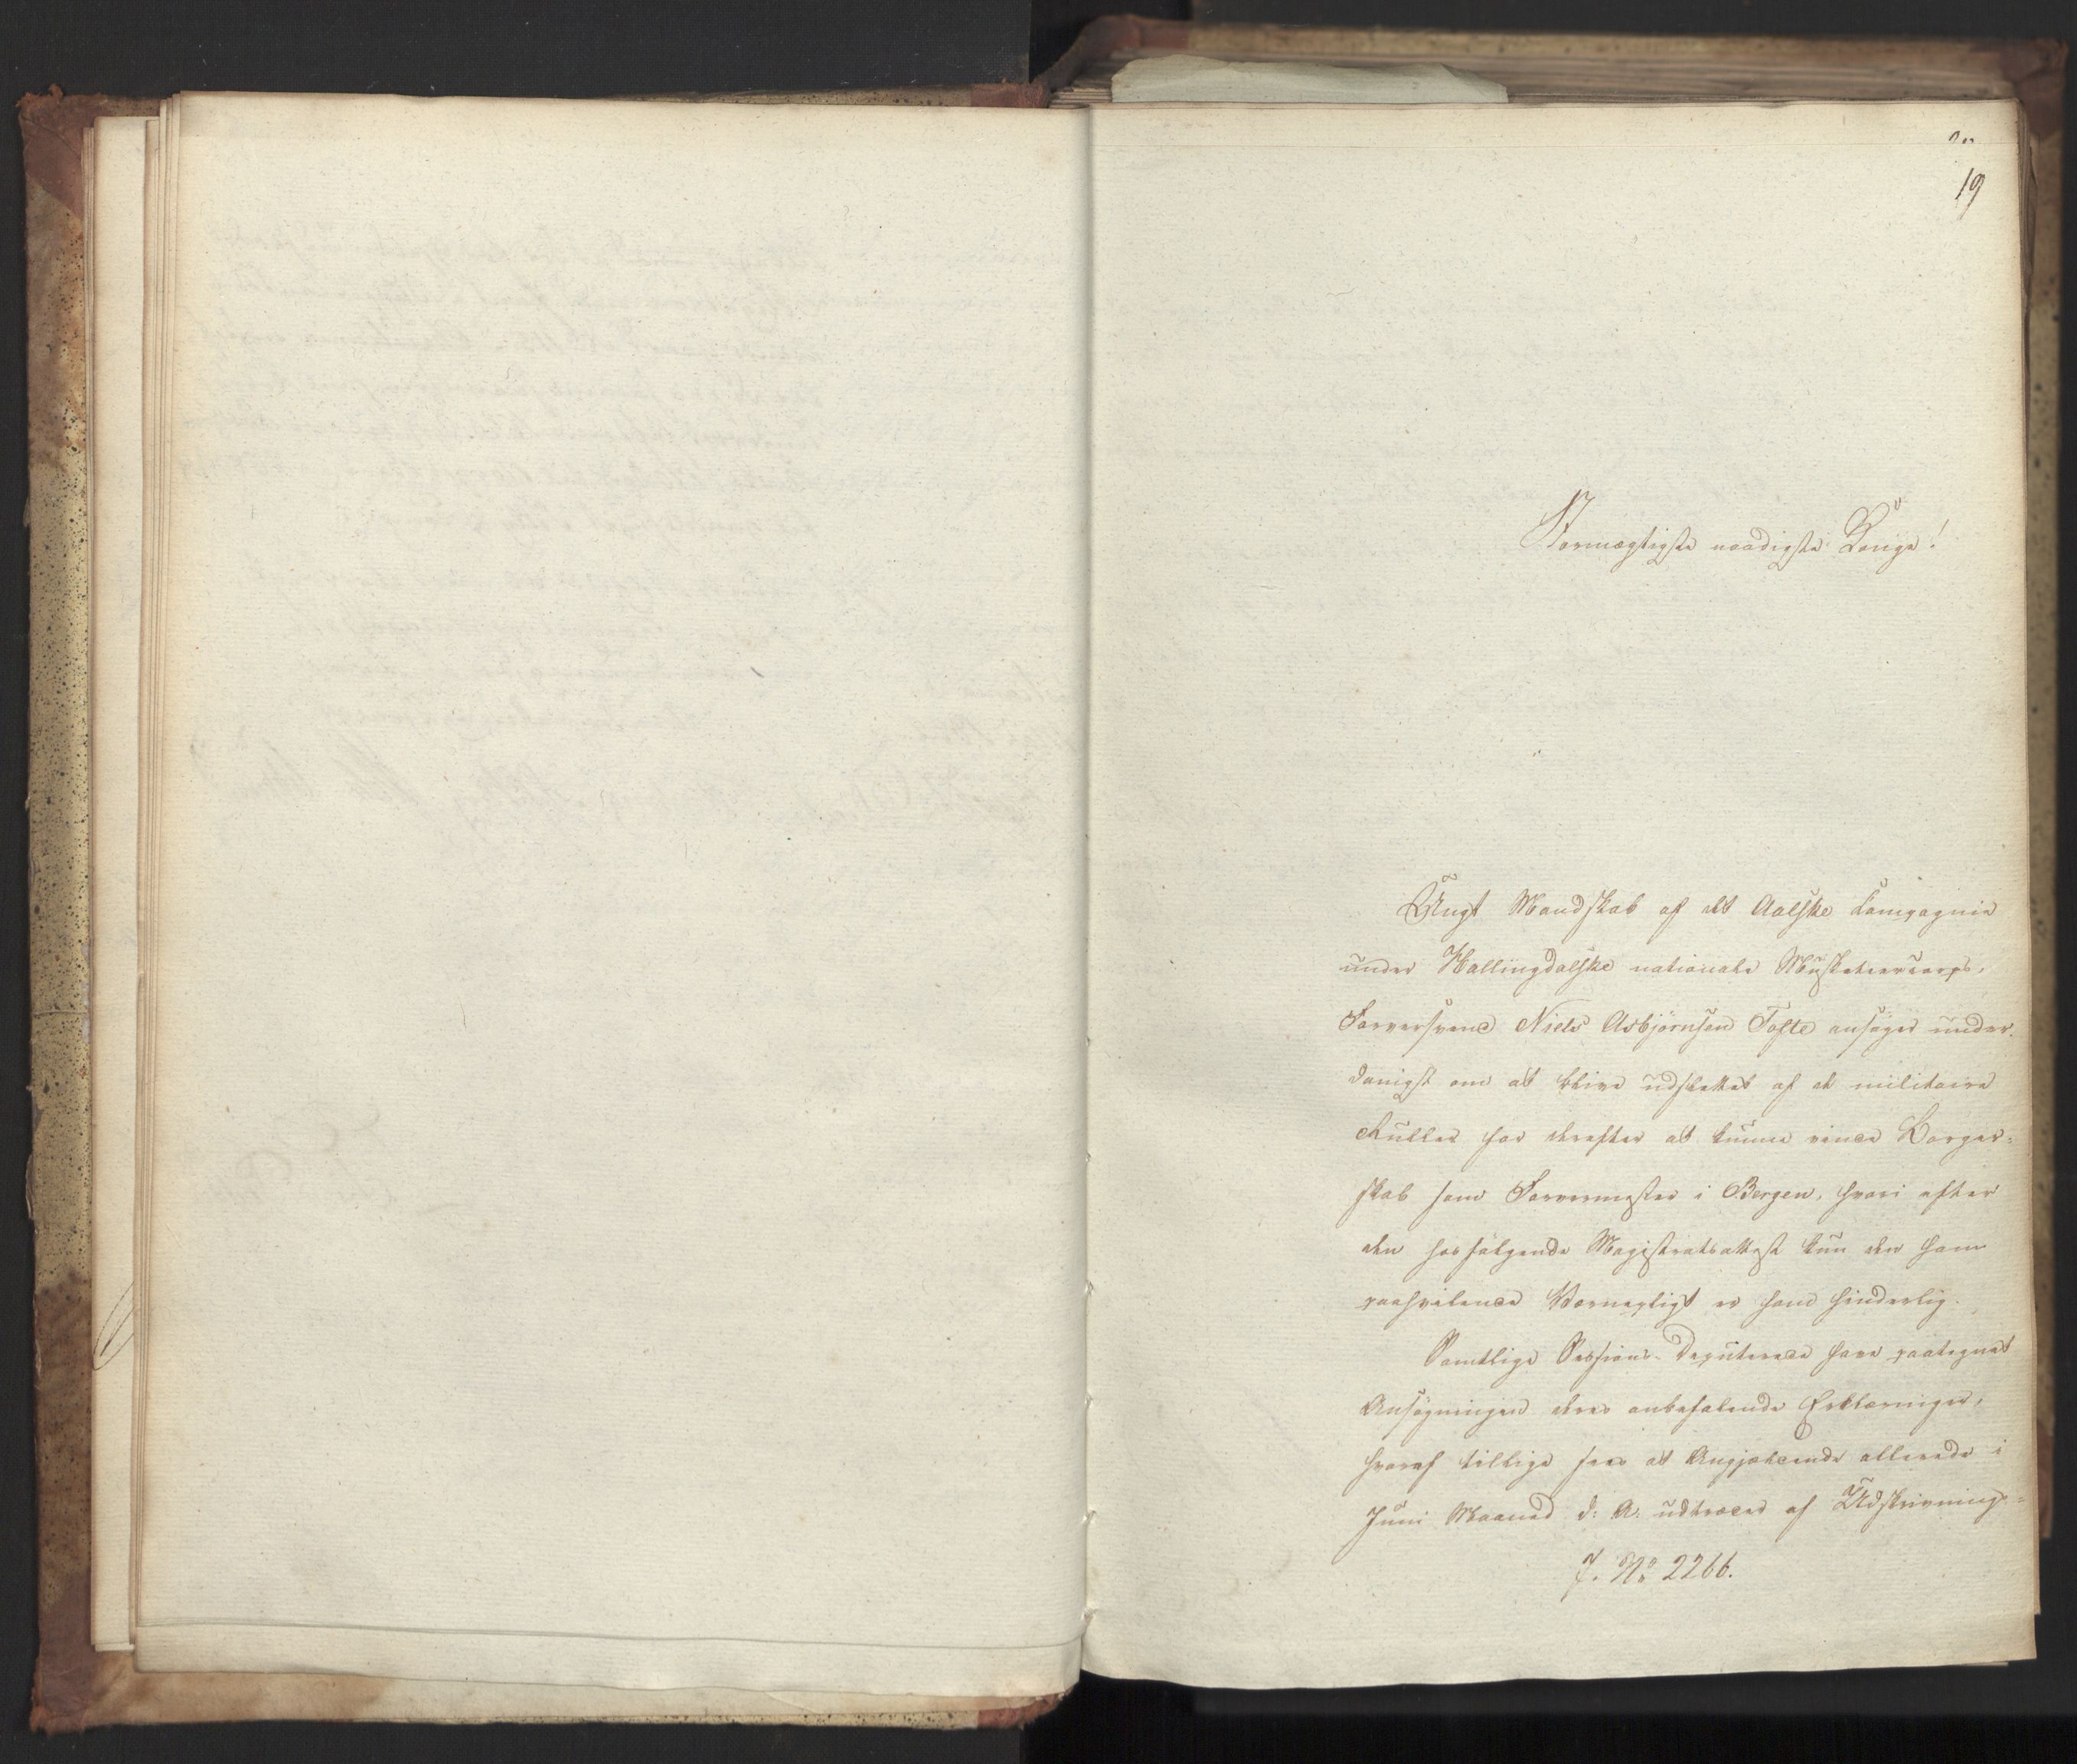 19
Stormægtigste naadigste Konge!
Ungt Mandskab af det Aalske Compagnie
under Hallingdalske nationale Musketeercorps,
Farversvend Niels Asbjörnsen Tofte ansöger under-
danigst om at blive udslettet af de militaire
Ruller for derefter at kunne vinde Borger=
skab som Farvermester i Bergen, hvori efter
den hosfölgende Magistratsattest kun den ham
paahvilendeVærnepligt er ham hinderlig.
Samtlige Sessions-Deputerede have paategnet
Ansögningen deres anbefalende Erklæringer,
hvoraf tillige sees at Angjældende allerede i
Juni Maaned d: A: udtræder af Udskrivnings=
J. No 2266.